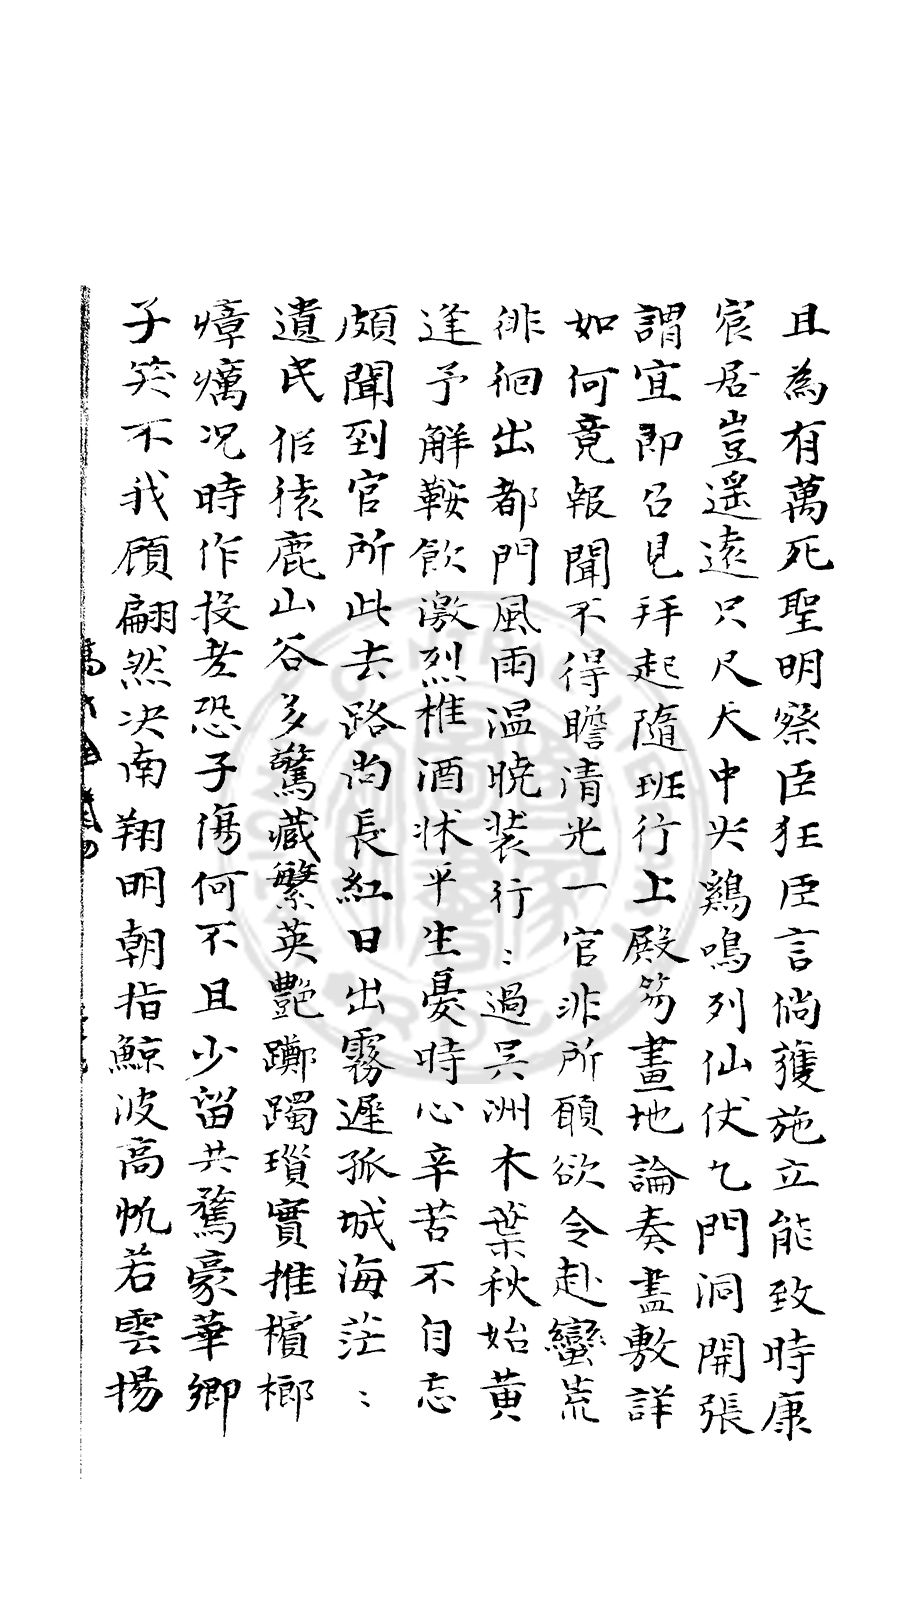 且為有萬死聖明察臣狂臣言倘獲施立能致時康
宸居豈遥遠只尺天中央鷄鳴列仙仗九門洞開張
謂宜即召見拜起隨班行上殿笏畫地論奏盡敷詳
如何竟報聞不得瞻清光一官非所願欲令赴蠻荒
徘徊出都門風雨温曉装行〻過吴洲木葉秋始黄
逢予解鞍飲激烈椎酒牀平生憂時心辛苦不自忘
頗聞到官所此去路尚長紅日出霧遲孤城海茫〻
遺民似猿鹿山谷多驚藏繁英艷躑躅瑣實推檳榔
瘴癘况時作投老恐子傷何不且少留共騖豪華鄉
子笑不我顧翩然决南翔明朝指鯨波高帆若雲揚